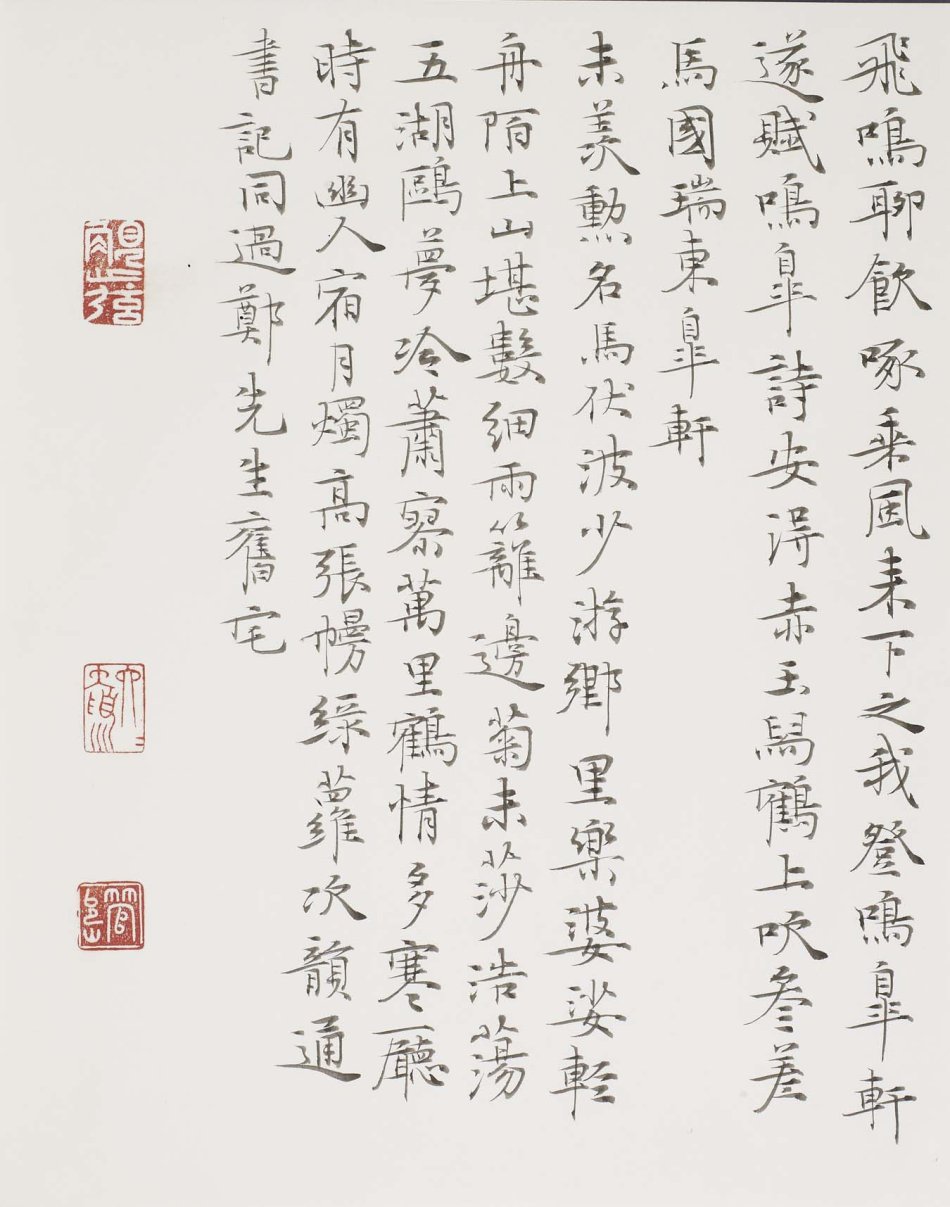 飛鳴聊飲啄乗風来下之我登鳴皐軒
遂賦鳴皐詩安淂赤玉舄鶴上吹叅差
馬國瑞東皐軒
未羡勲名馬伏波少游鄉里樂婆娑輕
舟陌上山堪數細雨籬邊菊未莎浩蕩
五湖鷗夢冷蕭寥萬里鶴情多寒廳
時有幽人宿月燭高張幔緑蘿次韻通
書記同過鄭先生舊宅